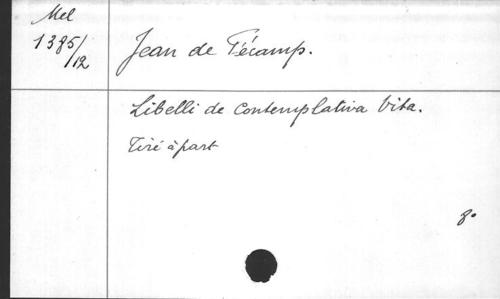 Mel
1385/12
Jean de Fécamp.
Libelli de contemplativa Vita.
Tiré à part
8°